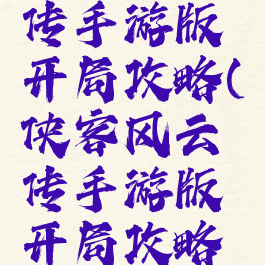 传手游版
开局攻略(
侠客风云
传手游版
开局攻略